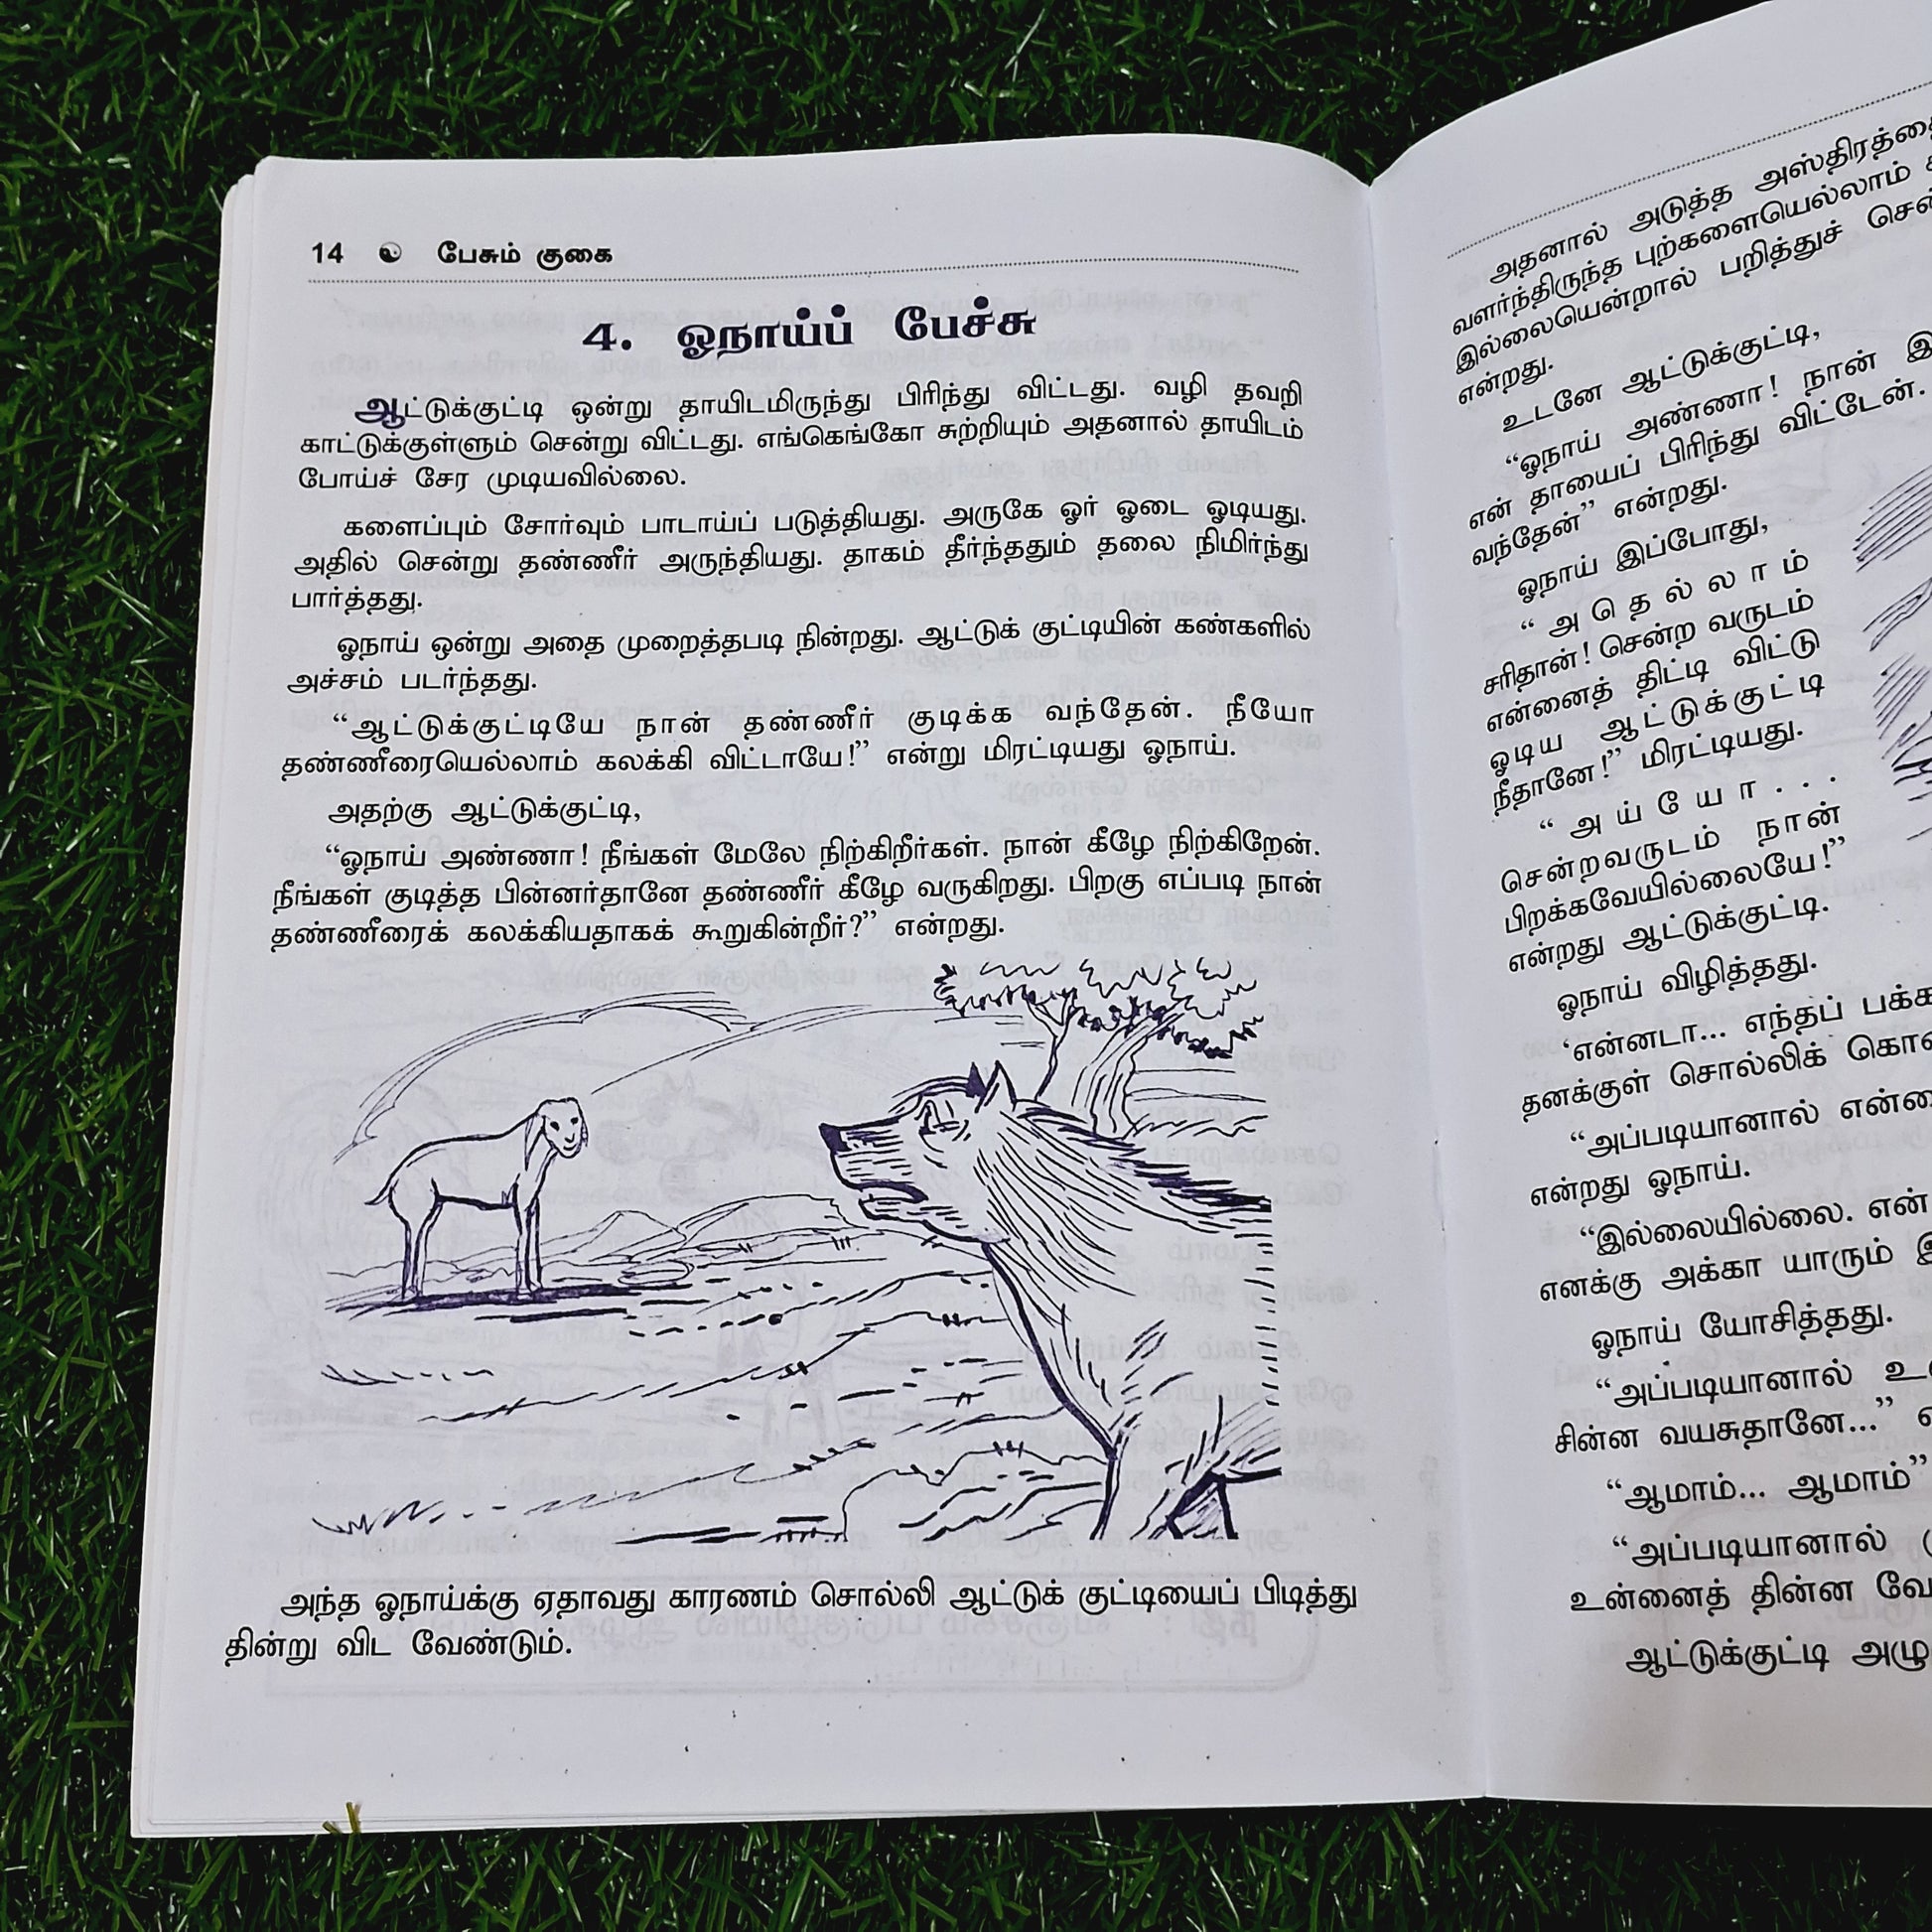 14 பேசும் குகை
4. ஓநாய்ப் பேச்சு
ஆட்டுக்குட்டி ஒன்று தாயிடமிருந்து பிரிந்து விட்டது. வழி தவறி
காட்டுக்குள்ளும் சென்று விட்டது. எங்கெங்கோ சுற்றியும் அதனால் தாயிடம்
போய்ச் சேர முடியவில்லை.
களைப்பும் சோர்வும் பாடாய்ப் படுத்தியது. அருகே ஓர் ஓடை ஓடியது.
அதில் சென்று தண்ணீர் அருந்தியது. தாகம் தீர்ந்ததும் தலை நிமிர்ந்து
பார்த்தது.
ஓநாய் ஒன்று அதை முறைத்தபடி நின்றது. ஆட்டுக் குட்டியின் கண்களில்
அச்சம் படர்ந்தது.
“ஆட்டுக்குட்டியே நான் தண்ணீர் குடிக்க வந்தேன். நீயோ
தண்ணீரையெல்லாம் கலக்கி விட்டாயே!” என்று மிரட்டியது ஓநாய்.
அதற்கு ஆட்டுக்குட்டி,
“ஓநாய் அண்ணா! நீங்கள் மேலே நிற்கிறீர்கள். நான் கீழே நிற்கிறேன்.
நீங்கள் குடித்த பின்னர்தானே தண்ணீர் கீழே வருகிறது. பிறகு எப்படி நான்
தண்ணீரைக் கலக்கியதாகக் கூறுகின்றீர்?” என்றது.
அந்த ஓநாய்க்கு ஏதாவது காரணம் சொல்லி ஆட்டுக் குட்டியைப் பிடித்து
தின்று விட வேண்டும்.
அதனால் அடுத்த
வளர்ந்திருந்த புற்களையெல்லாம்
இல்லையென்றால் பறித்துச்
என்றது.
உடனே ஆட்டுக்குட்டி,
“ஓநாய் அண்ணா! நான்
என் தாயைப் பிரிந்து விட்டேன்.
வந்தேன்” என்றது.
ஓநாய் இப்போது,
“அதெல்லாம்
சரிதான்! சென்ற வருடம்
என்னைத் திட்டி விட்டு
ஓடிய ஆட்டுக்குட்டி
நீதானே!” மிரட்டியது.
“அய்யோ...
சென்றவருடம் நான்
பிறக்கவேயில்லையே!”
என்றது ஆட்டுக்குட்டி.
ஓநாய் விழித்தது.
‘என்னடா... எந்தப்
தனக்குள் சொல்லிக்
“அப்படியானால்
என்றது ஓநாய்.
“இல்லையில்லை. என்
எனக்கு அக்கா யாரும்
ஓநாய் யோசித்தது.
“அப்படியானால்
சின்ன வயசுதானே...”
“ஆமாம்... ஆமாம்”
“அப்படியானால்
உன்னைத் தின்ன
ஆட்டுக்குட்டி